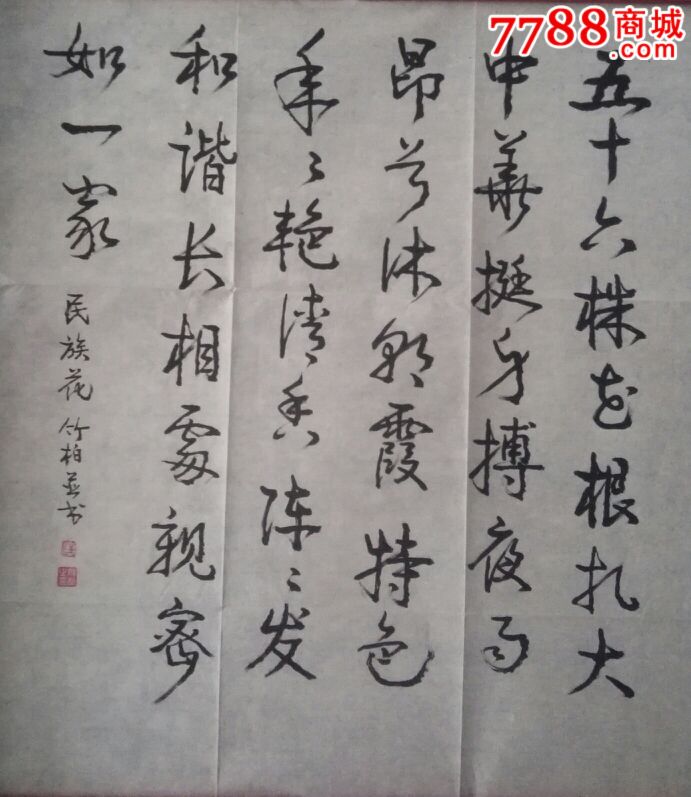 7788商城
.com
五十六株花根扎大
中華挺身搏夜雨
昂首沐朝霞特色
年々艳清香陈々发
和谐长相處親密
如一家
民族花 竹柏并书